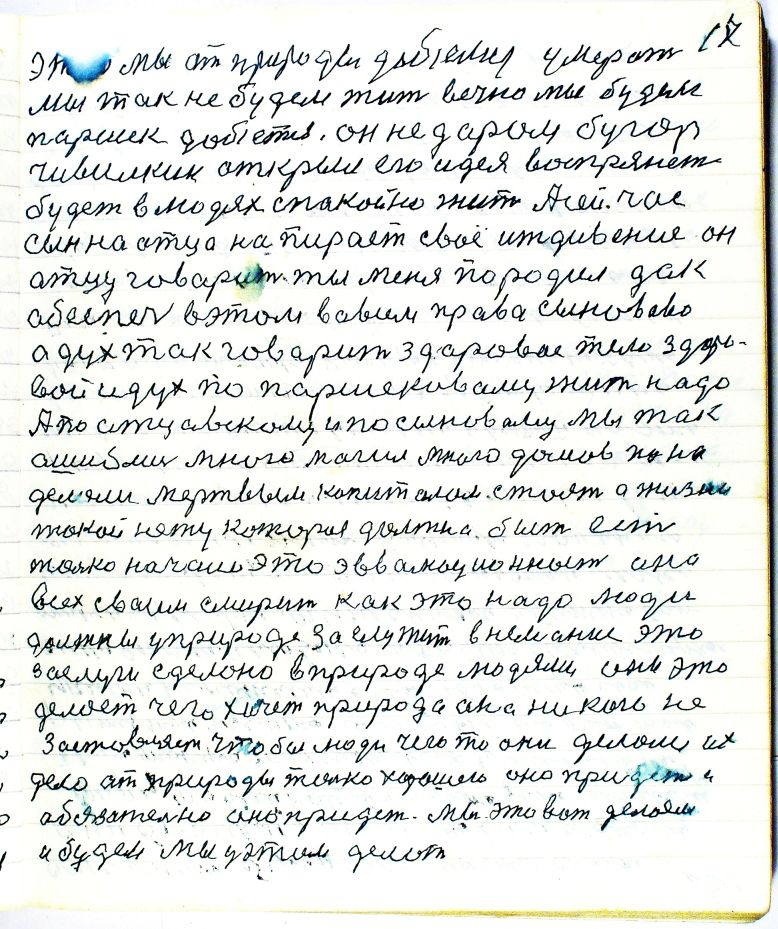 17
это мы от природы добъемся умерат
мы так не будем жит вечно мы будем
паршек добъется. он не даром бугор
чивилкин открыл его идея воспрянет
будет в людях спакойно жит А сей. час
сын на отца напирает своё иждивение он
атцу говарит. ты меня породил дак
абеспеч в этом вавсем права сыновево
а дух так говарит здаровае тело здаро-
вой и дух по паршековаму жит надо
А по отцавскому и по сыноваму мы так
ашиблис много магил много домов по на
делали мертвым капиталам. стоят а жизни
такой нету которая должна быт ест
толко начали это эввалюционныт она
всех сваим смирит как это надо люди
должны у природе заслужит внемание это
заслуги сделоно в природе людями они это
делает чего хочет природа ана никого не
заставляет чтобы люди чего то они делали их
дело ат природы толко харошего оно придет и
абязателно оно придет. мы это вот делаем
и будем мы у этом делат